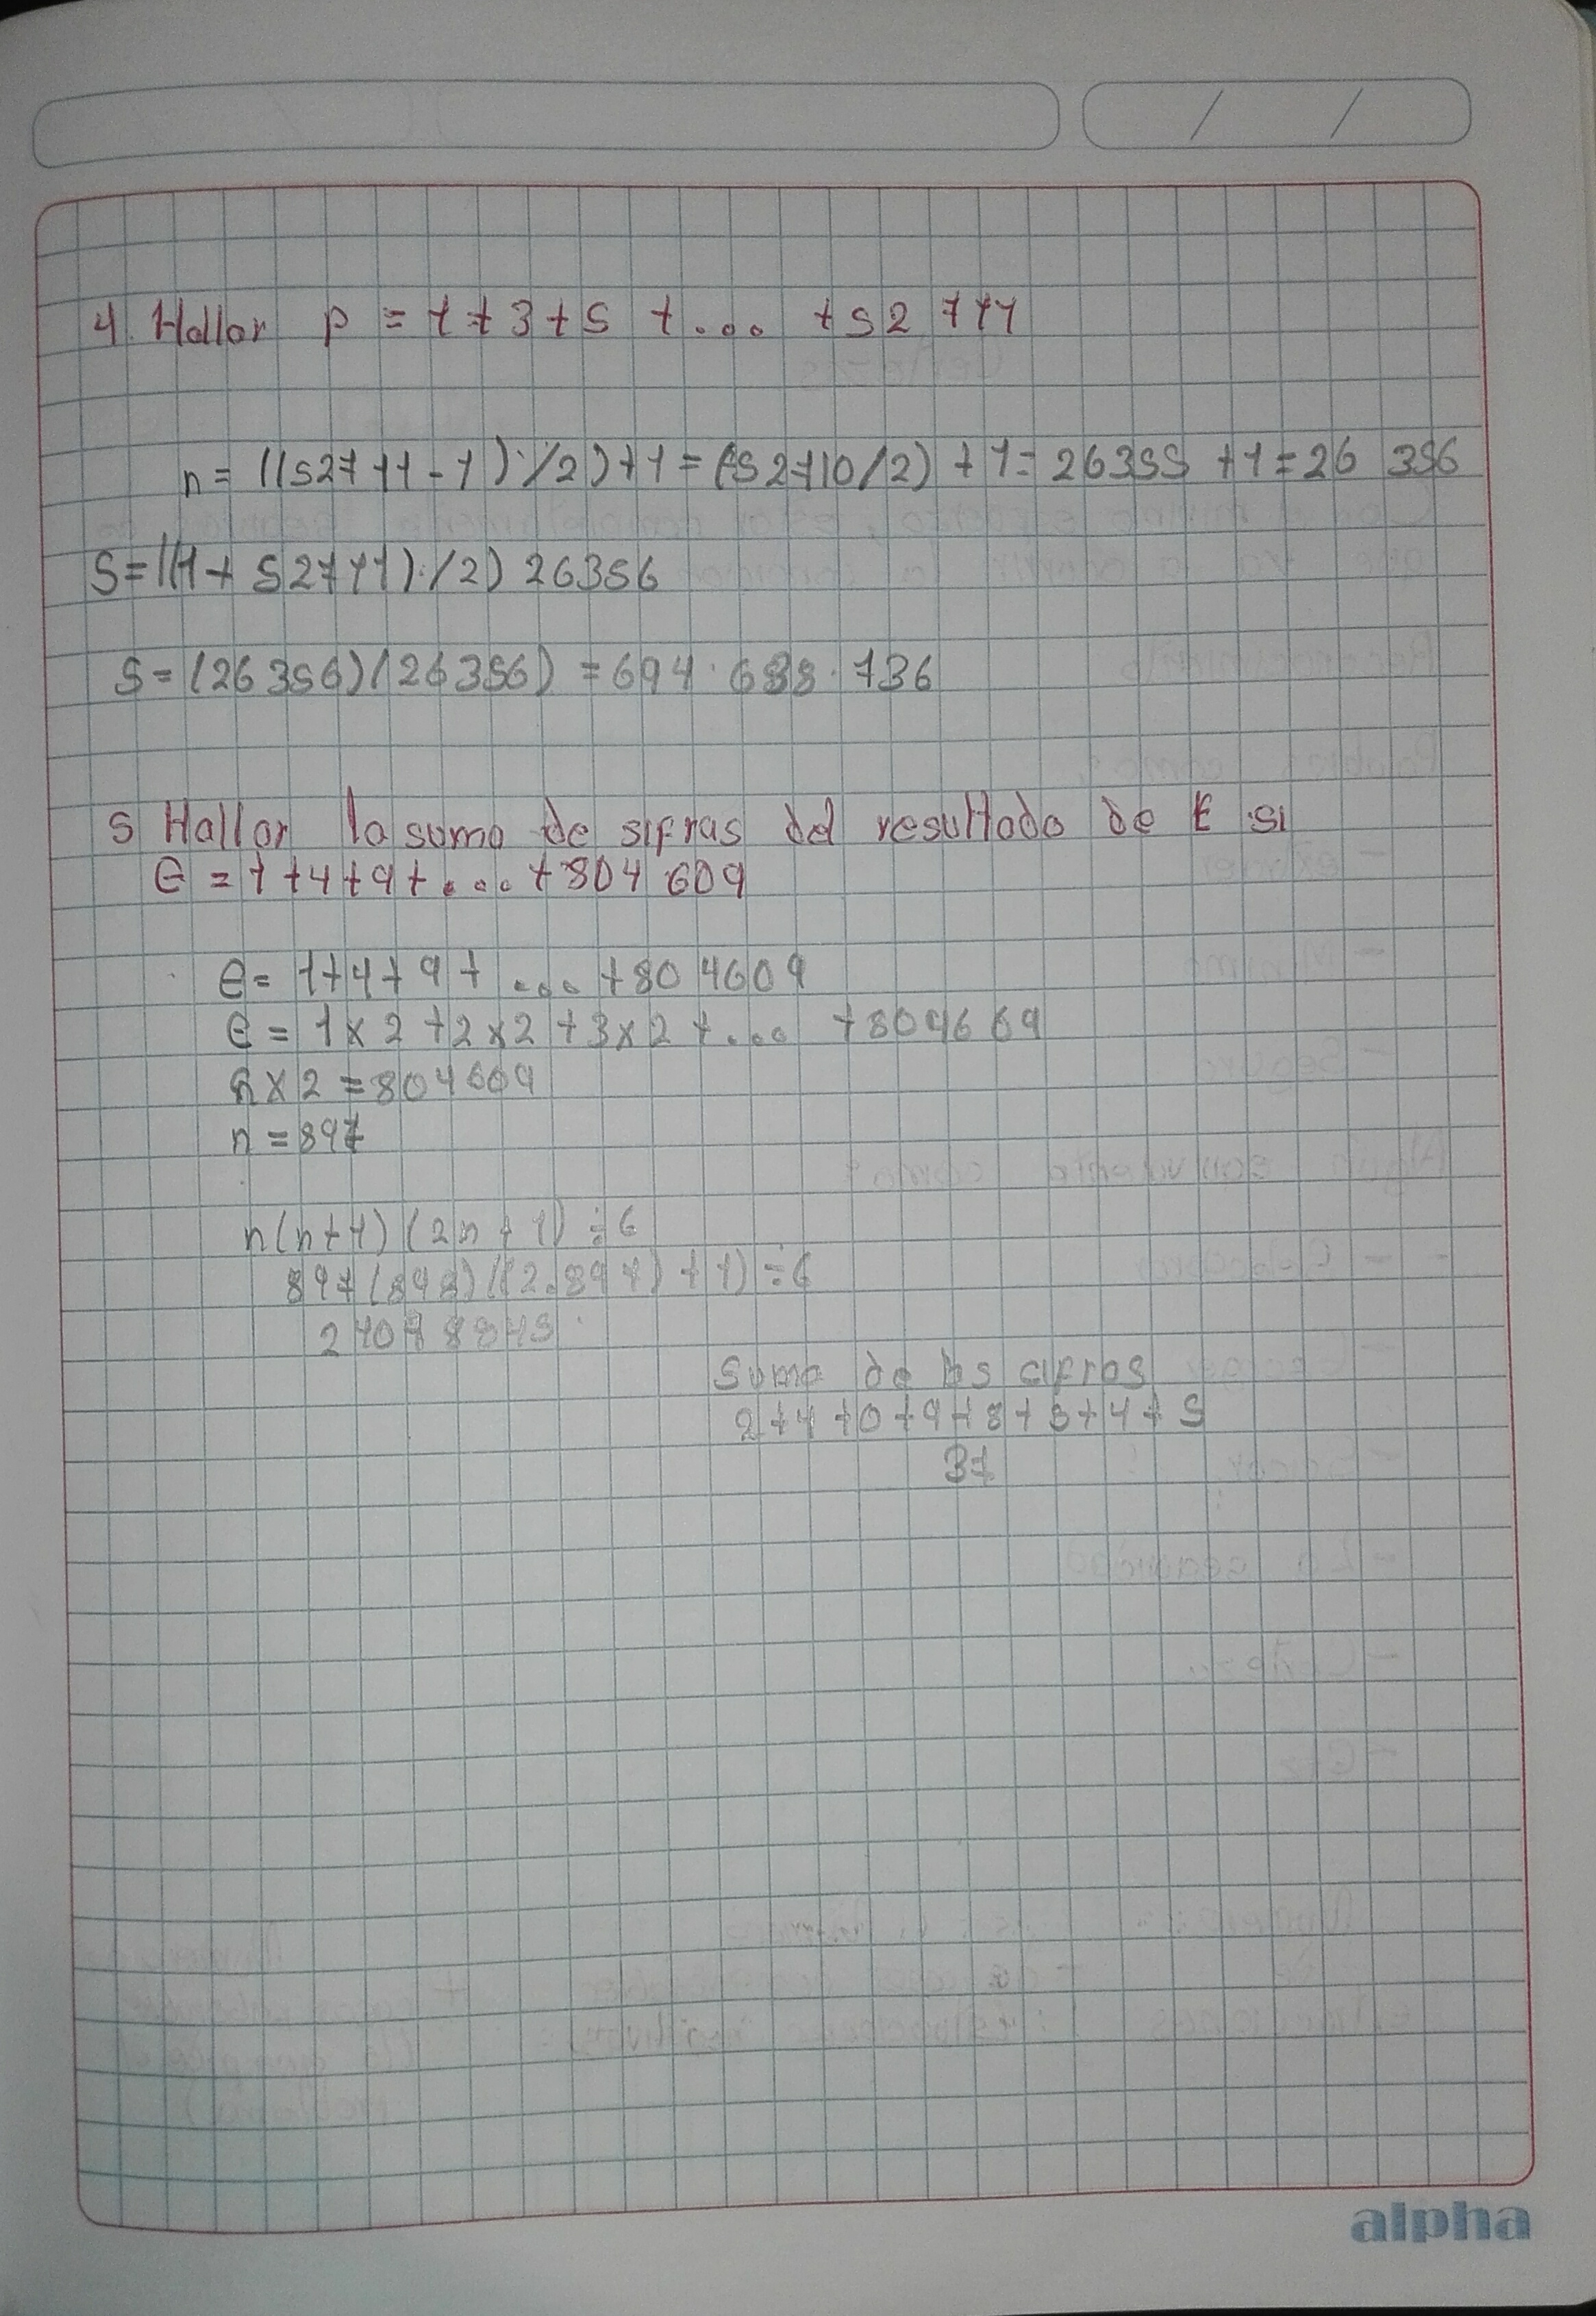 4. Hallar P = 1 + 3 + 5 + ... + 52 711
n = ((52711 - 1) /2) + 1 = (52710/2) + 1 = 26355 + 1 = 26 356
S = ((1 + 52711) /2) 26356
S = (26356)(26356) = 694.638.736
5 Hallar la suma de sifras del resultado de E si
E = 1 + 4 + 9 + ... + 804 609
e = 1 + 4 + 9 + ... + 804609
e = 1 x 2 + 2 x 2 + 3 x 2 + ... + 804609
n x 2 = 804609
n = 897
n(n+1) (2n + 1) ÷ 6
897 (898) ((2.897) + 1) ÷ 6
Suma de las cifras
2 + 4 + 0 + 9 + 8 + 5 + 4 + 5
37
alpha